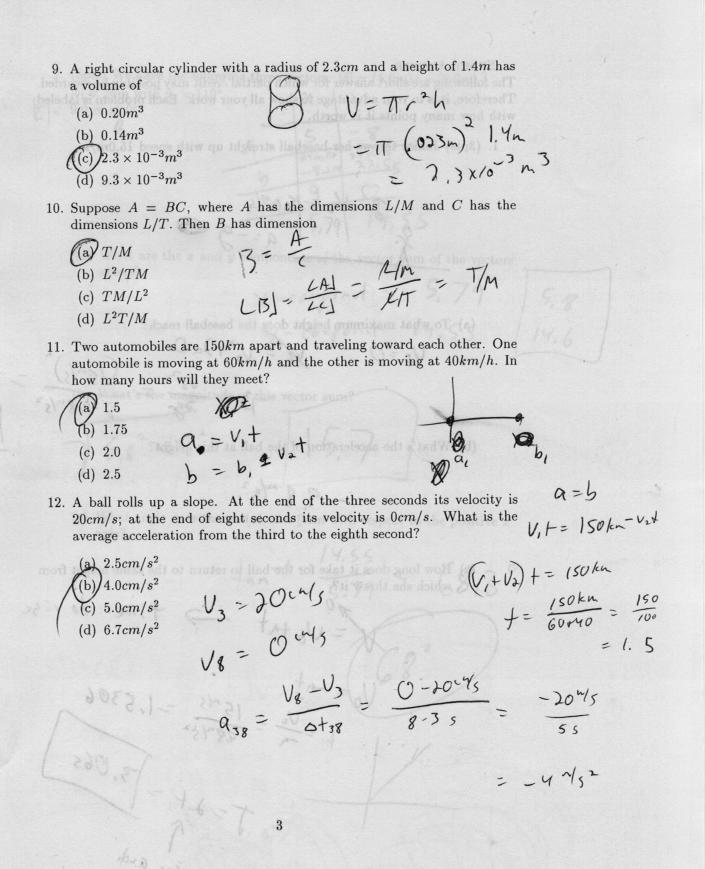 9. A right circular cylinder with a radius of 2.3cm and a height of 1.4m has
a volume of
(a) 0.20m³
(b) 0.14m³
(c) 2.3 × 10⁻³m³
(d) 9.3 × 10⁻³m³
V = πr²h
= π (.023m)² 1.4m
= 2.3 x10⁻³ m³
10. Suppose A = BC, where A has the dimensions L/M and C has the
dimensions L/T. Then B has dimension
(a) T/M
(b) L²/TM
(c) TM/L²
(d) L²T/M
B = A/C
[B] = [A]/[C] = L/M / L/T = T/M
11. Two automobiles are 150km apart and traveling toward each other. One
automobile is moving at 60km/h and the other is moving at 40km/h. In
how many hours will they meet?
(a) 1.5
(b) 1.75
(c) 2.0
(d) 2.5
a = v₁t
b = b₁ ± v₂t
a₁
b₁
12. A ball rolls up a slope. At the end of the three seconds its velocity is
20cm/s; at the end of eight seconds its velocity is 0cm/s. What is the
average acceleration from the third to the eighth second?
(a) 2.5cm/s²
(b) 4.0cm/s²
(c) 5.0cm/s²
(d) 6.7cm/s²
a = b
V₁t = 150km - V₂t
(V₁+V₂) t = 150km
t = 150km / 60+40 = 150 / 100
= 1.5
V₃ = 20cm/s
V₈ = 0cm/s
a₃₈ = V₈ - V₃ / Δt₃₈ = 0-20cm/s / 8-3 s = -20m/s / 5s
= -4 m/s²
3